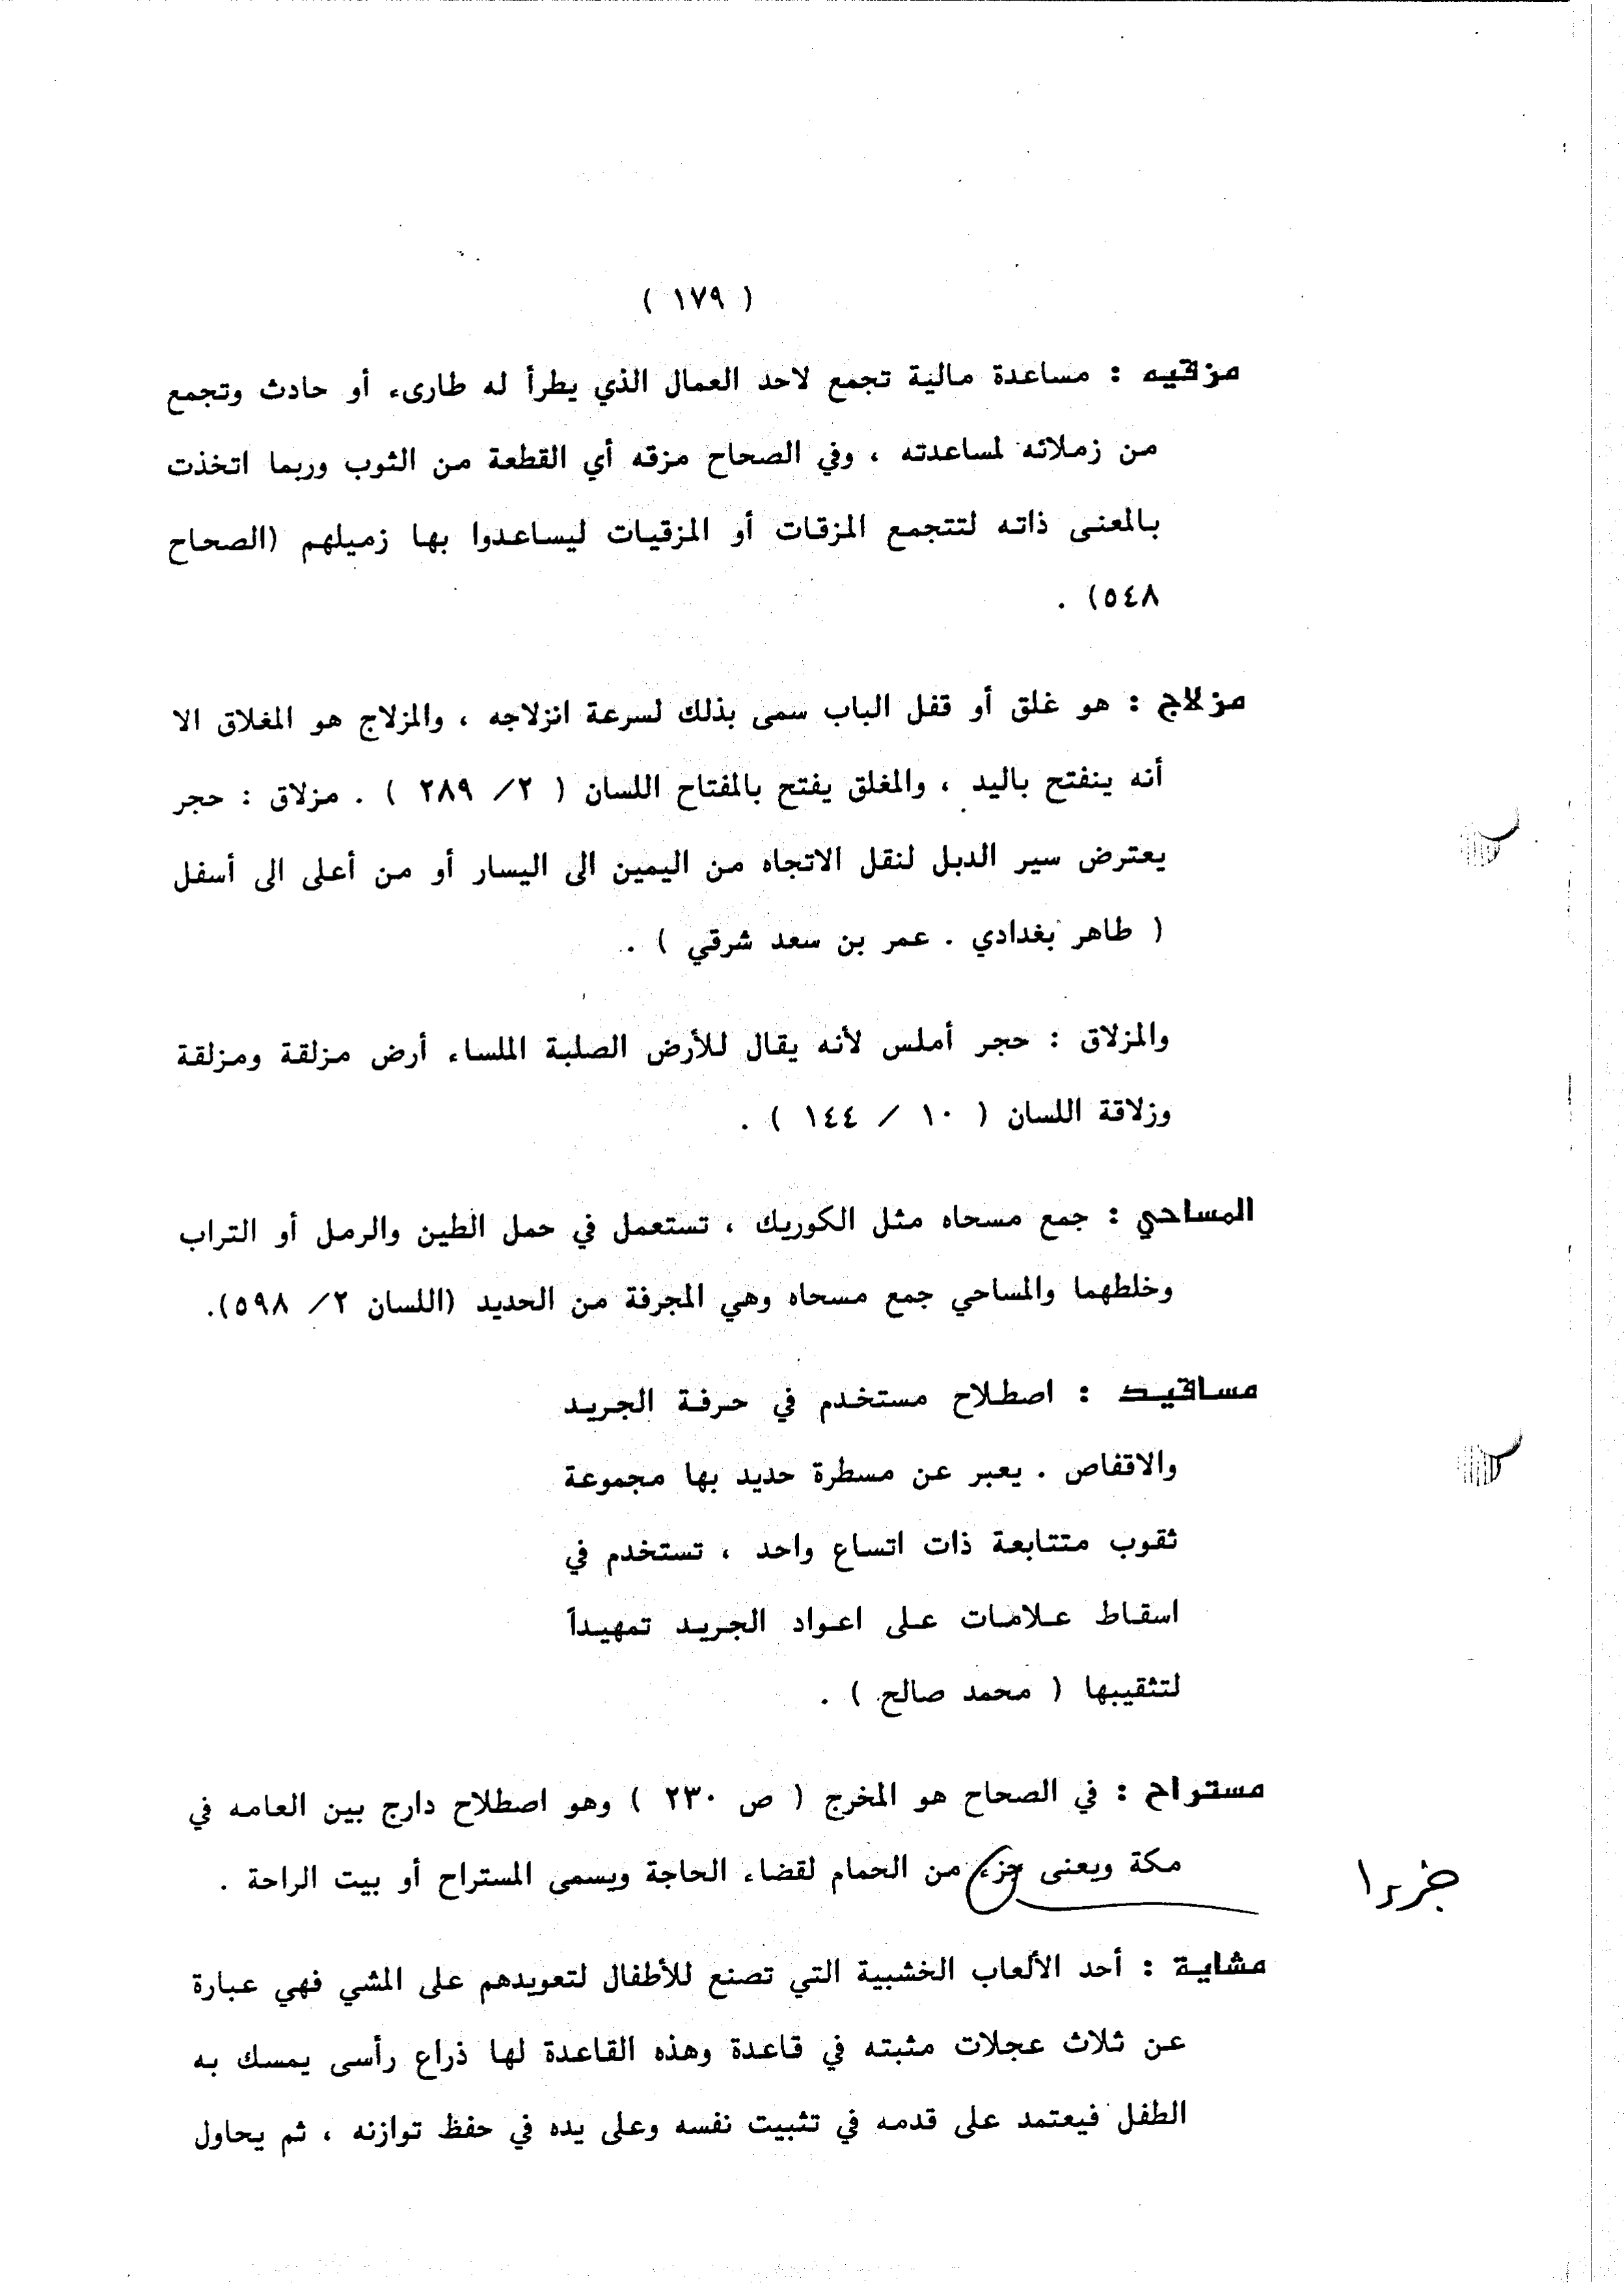 ( ١٧٩ )
مزقيه : مساعدة مالية تجمع لاحد العمال الذي يطرأ له طارىء أو حادث وتجمع
من زملائه لمساعدته ، وفي الصحاح مزقه أي القطعة من الثوب وربما اتخذت
بالمعنى ذاته لتتجمع المزقات أو المزقيات ليساعدوا بها زميلهم (الصحاح
٥٤٨) .
مزلاج : هو غلق أو قفل الباب سمى بذلك لسرعة انزلاجه ، والمزلاج هو المغلاق الا
أنه ينفتح باليد ، والمغلق يفتح بالمفتاح اللسان ( ٢/ ٢٨٩ ) . مزلاق : حجر
يعترض سير الدبل لنقل الاتجاه من اليمين الى اليسار أو من أعلى الى أسفل
( طاهر بغدادي . عمر بن سعد شرقي ) .
والمزلاق : حجر أملس لأنه يقال للأرض الصلبة الملساء أرض مزلقة ومزلقة
وزلاقة اللسان ( ١٠ / ١٤٤ ) .
المساحي : جمع مسحاه مثل الكوريك ، تستعمل في حمل الطين والرمل أو التراب
وخلطهما والمساحي جمع مسحاه وهي المجرفة من الحديد (اللسان ٢/ ٥٩٨).
مساقيد : اصطلاح مستخدم في حرفة الجريد
والاقفاص . يعبر عن مسطرة حديد بها مجموعة
ثقوب متتابعة ذات اتساع واحد ، تستخدم في
اسقاط علامات على اعواد الجريد تمهيداً
لتثقيبها ( محمد صالح ) .
مستراح : في الصحاح هو المخرج ( ص ٢٣٠ ) وهو اصطلاح دارج بين العامه في
مكة ويعنى جزء من الحمام لقضاء الحاجة ويسمى المستراح أو بيت الراحة .
جزءا
مشاية : أحد الألعاب الخشبية التي تصنع للأطفال لتعويدهم على المشي فهي عبارة
عن ثلاث عجلات مثبته في قاعدة وهذه القاعدة لها ذراع رأسى يمسك به
الطفل فيعتمد على قدمه في تثبيت نفسه وعلى يده في حفظ توازنه ، ثم يحاول